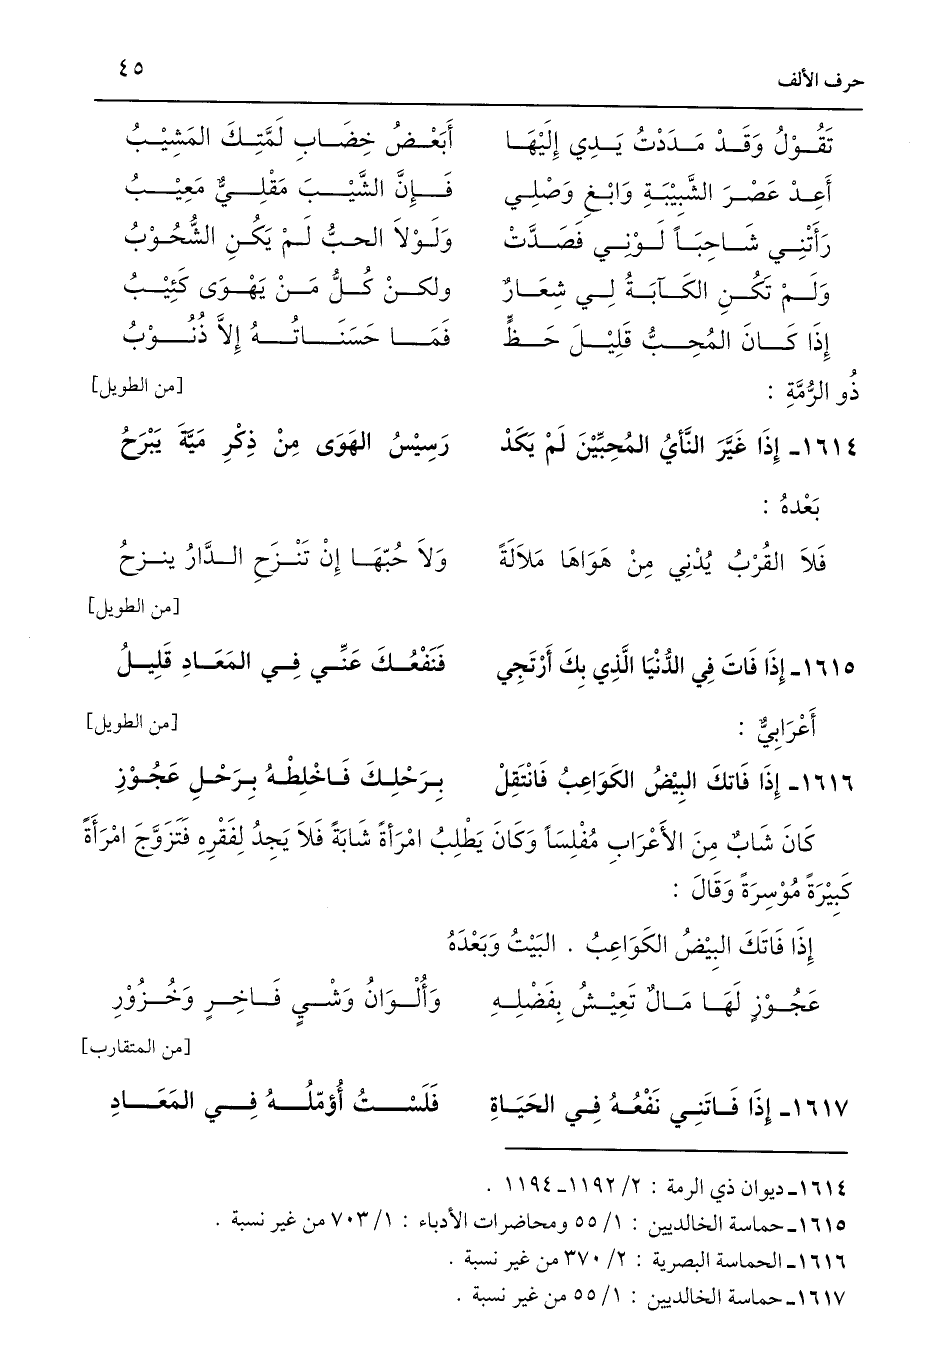 حرف الألف ٤٥
تَقُولُ وَقَدْ مَدَدْتُ يَدِي إِلَيْهَا أَبَعْضُ خِضَابِ لَمَّتِكَ المَشِيْبُ
أَعِدْ عَصْرَ الشَّبِيْبَةِ وَابْغِ وَصْلِي فَإِنَّ الشَّيْبَ مَقْلِيٌّ مَعِيْبُ
رَأَتْنِي شَاحِبَاً لَوْنِي فَصَدَّتْ وَلَوْلاَ الحبُّ لَمْ يَكُنِ الشُّحُوْبُ
وَلَمْ تَكُنِ الكَآبَةُ لِي شِعَارٌ ولكنْ كُلُّ مَنْ يَهْوَى كَئِيْبُ
إِذَا كَانَ المُحِبُّ قَلِيْلَ حَظٍّ فَمَا حَسَنَاتُهُ إِلاَّ ذُنُوْبُ
ذُو الرُّمَّةِ : [من الطويل]
١٦١٤ـ إِذَا غَيَّرَ النَّأيُ المُحِبِّيْنَ لَمْ يَكَدْ رَسِيْسُ الهَوَى مِنْ ذِكْرِ مَيَّةَ يَبْرَحُ
بَعْدهُ :
فَلاَ القُرْبُ يُدْنِي مِنْ هَوَاهَا مَلاَلَةً وَلاَ حُبّهَا إِنْ تَنْزَحِ الدَّارُ ينزحُ
[من الطويل]
١٦١٥ـ إِذَا فَاتَ فِي الدُّنْيَا الَّذِي بِكَ أَرْتَجِي فَنَفْعُكَ عَنِّي فِي المَعَادِ قَلِيلُ
أَعْرَابِيٌّ : [من الطويل]
١٦١٦ـ إِذَا فَاتكَ البِيْضُ الكَوَاعِبُ فَانْتَقِلْ بِرَحْلِكَ فَاخْلِطْهُ بِرَحْلِ عَجُوْزِ
كَانَ شَابٌ مِنَ الأَعْرَابِ مُفْلِسَاً وَكَانَ يَطْلِبُ امْرَأَةً شَابَةً فَلاَ يَجِدُ لِفَقْرِهِ فَتَزَوَّجَ امْرَأَةً
كَبِيْرَةً مُؤسِرَةً وَقَالَ :
إِذَا فَاتَكَ البِيْضُ الكَوَاعِبُ . البَيْتُ وَبَعْدَهُ
عَجُوْزٍ لَهَا مَالٌ تَعِيْشُ بِفَضْلِهِ وَأَلْوَانُ وَشْيٍ فَاخِرٍ وَخُزُوْرِ
[من المتقارب]
١٦١٧ـ إِذَا فَاتَنِي نَفْعُهُ فِي الحَيَاةِ فَلَسْتُ أُؤمّلُهُ فِي المَعَادِ
١٦١٤ـ ديوان ذي الرمة : ٢/ ١١٩٢ـ ١١٩٤ .
١٦١٥ـ حماسة الخالديين : ١/ ٥٥ ومحاضرات الأدباء : ١/ ٧٠٣ من غير نسبة .
١٦١٦ـ الحماسة البصرية : ٢/ ٣٧٠ من غير نسبة .
١٦١٧ـ حماسة الخالديين : ١/ ٥٥ من غير نسبة .